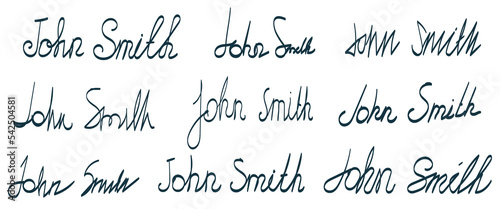 John Smith John Smith John Smith
John Smith John Smith John Smith
John Smith John Smith John Smith
Adobe Stock | #542504581